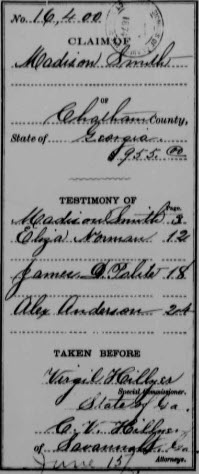 No. 16,400.
CLAIM OF
Madison Smith
OF
Chatham County,
State of Georgia.
$955.00
TESTIMONY OF
Page.
Madison Smith 3
Eliza Norman 12
James D. 18
Alex Anderson 24
TAKEN BEFORE
Virgil Hillyer
Special Commissioner.
State of Ga.
C. V. Hillyer
of Savannah, Ga
Attorneys.
June 15